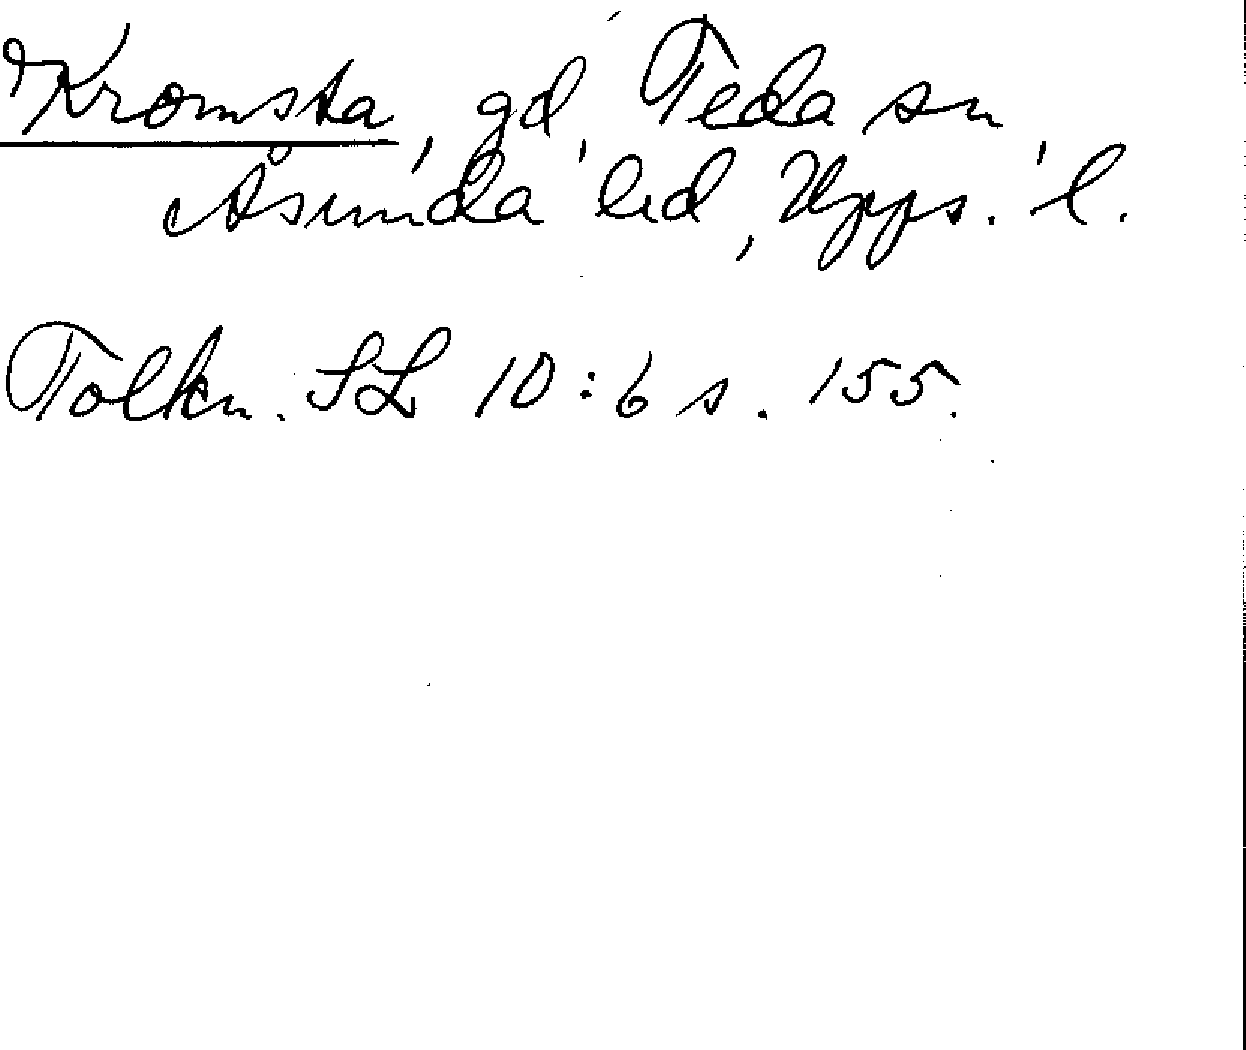 Kromsta, gd, Teda sn,
Åsunda hd, Upps. l.
Tolkn. SL 10:6 s. 155.